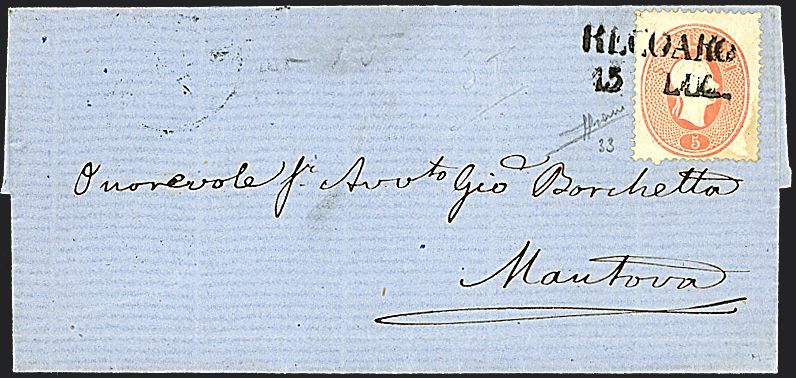 RECOARO
15 LUG.
5
33
Onorevole Sr. Avvto Gio Borchetta
Mantova